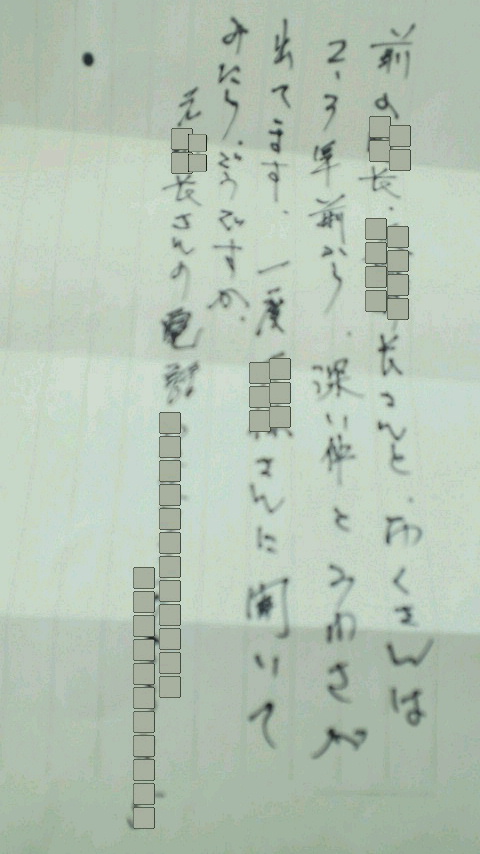 前の 長. 長さんと、おくさんは
2、3年前から、深い仲とうわさが
出てます、一度 さんに聞いて
みたら、どうですか、
元 長さんの電話